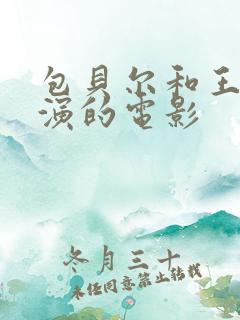 包貝尔和王
演的電影
冬月三十
未经同意禁止转载